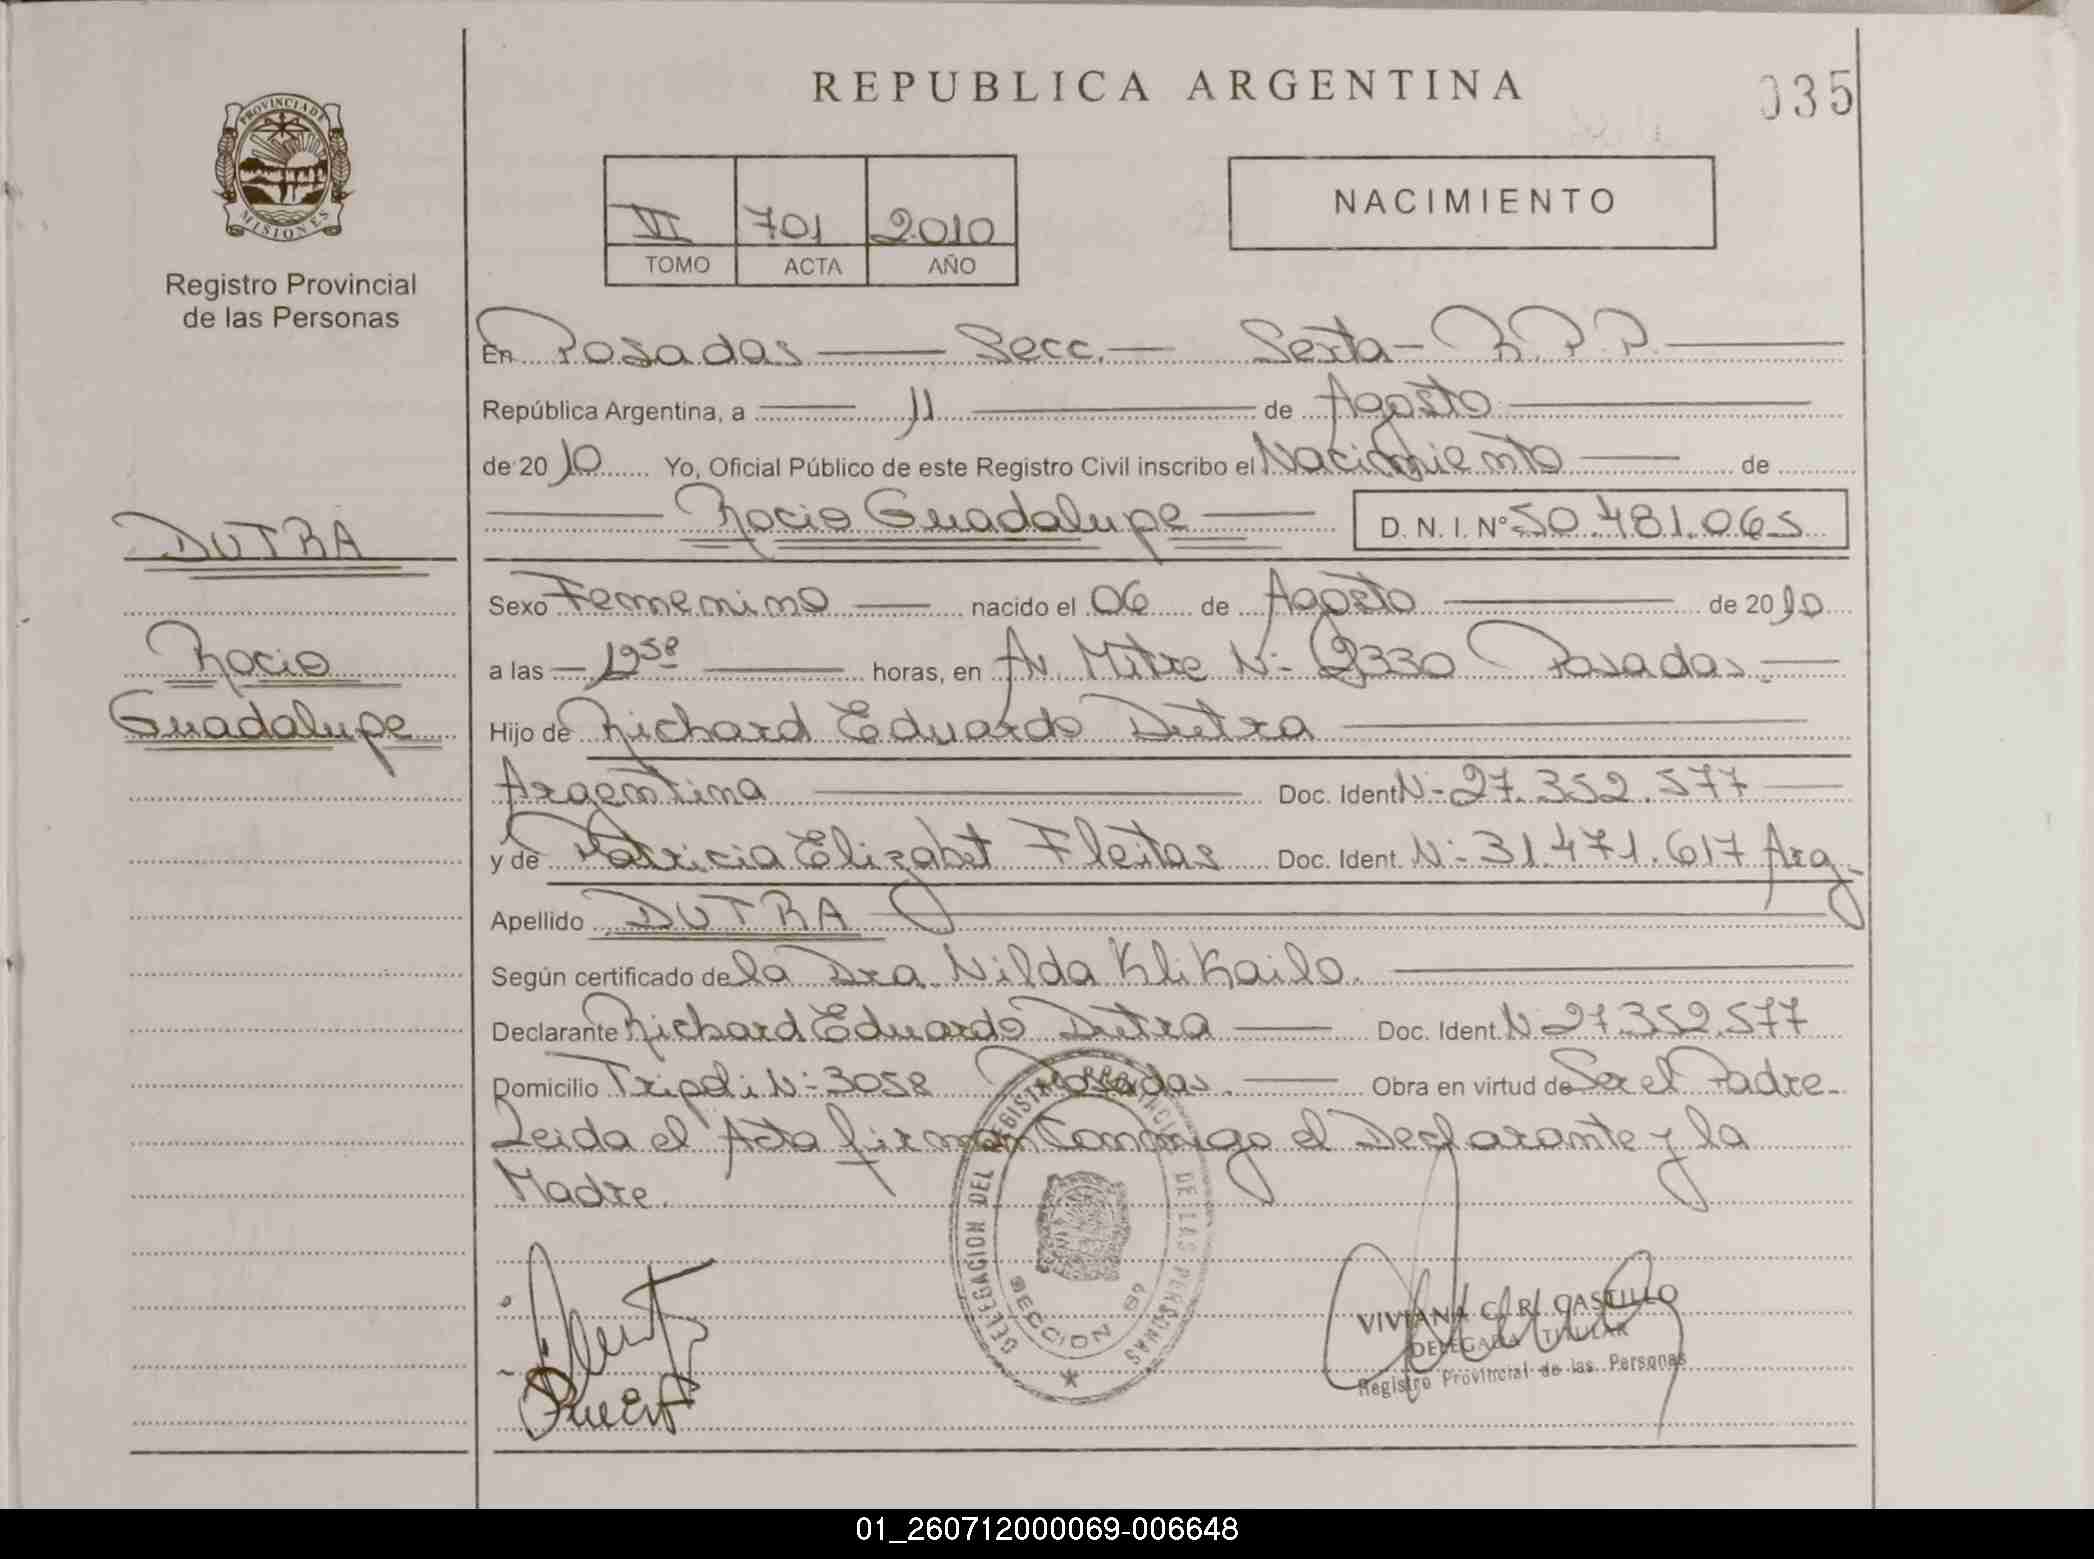 REPUBLICA ARGENTINA
035
PROVINCIA DE
MISIONES
Registro Provincial
de las Personas
VI 701 2010
TOMO ACTA AÑO
NACIMIENTO
En Posadas Secc. Sexta - R.P.P.
República Argentina, a 11 de Agosto
de 2010 Yo, Oficial Público de este Registro Civil inscribo el Nacimiento de
Rocio Guadalupe D. N. I. Nº 50.481.065
DUTRA
Rocio
Guadalupe
Sexo Femenino nacido el 06 de Agosto de 2010
a las horas, en Av. Mitre N- 2330 Posadas.
Hijo de Richard Eduardo Dutra
Argentina Doc. Ident N- 27.352.577
y de Patricia Elizabet Fleitas Doc. Ident. N- 31.471.617 Arg.
Apellido DUTRA
Según certificado de la Dra. Nilda Klikailo.
Declarante Richard Eduardo Dutra Doc. Ident. N- 27.352.577
Domicilio Tripoli N- 3058 Posadas. Obra en virtud de Ser el Padre-
Leida el Acta firman Conmigo el Declarante y la
Madre.
DELEGACION DEL REGISTRO PROVINCIAL DE LAS PERSONAS
SECCION 6º
VIVIANA C. R. CASTILLO
DELEGADA TITULAR
Registro Provincial de las Personas
01_260712000069-006648